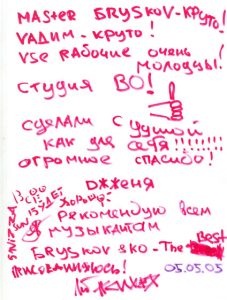 MASTER БRYSKOV-КРУТО!
VАДИМ-КРУТО!
VSE RАБОЧИЕ ОЧЕНЬ
МОЛОДЦЫ!
СТУДИЯ ВО!
СДЕЛАЛИ С ДУШОЙ
КАК ДЛЯ СЕБЯ!!!!!!!!
ОГРОМНОЕ СПАСИБО!
ДЖЖЕНЯ
БУДЕТ ХОРОШО!
РЕКОМЕНДУЮ ВСЕМ
МУЗЫКАНТАМ
БRYSKOV &KO-The Best
ПРИСОЕДИНЯЮСЬ!
05.05.05